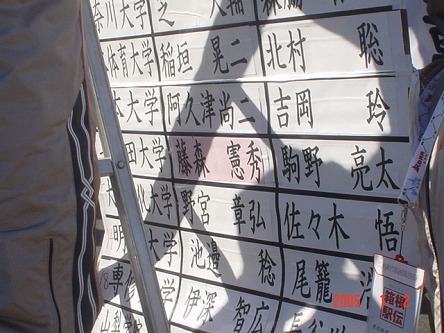 奈川大学
体育大学 稲垣 晃二 北村 聡
本大学 阿久津尚二 吉岡 玲
田大学 藤森 憲秀 駒野 亮太
大学 野宮 章弘 佐々木 悟
明 大学 池邉 稔 尾籠
8 専 大学 伊深 智広
山梨学
2005
箱根
駅伝